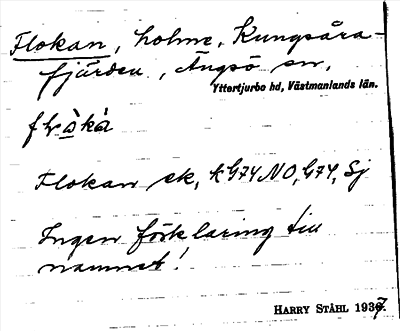 Flokan, holme, Kungsåra-
fjärden, Ängsö sn,
Yttertjurbo hd, Västmanlands län.
Flokan ek, k G74 NO, G74, Sj
Ingen förklaring till
namnet!
HARRY STÅHL 1937.